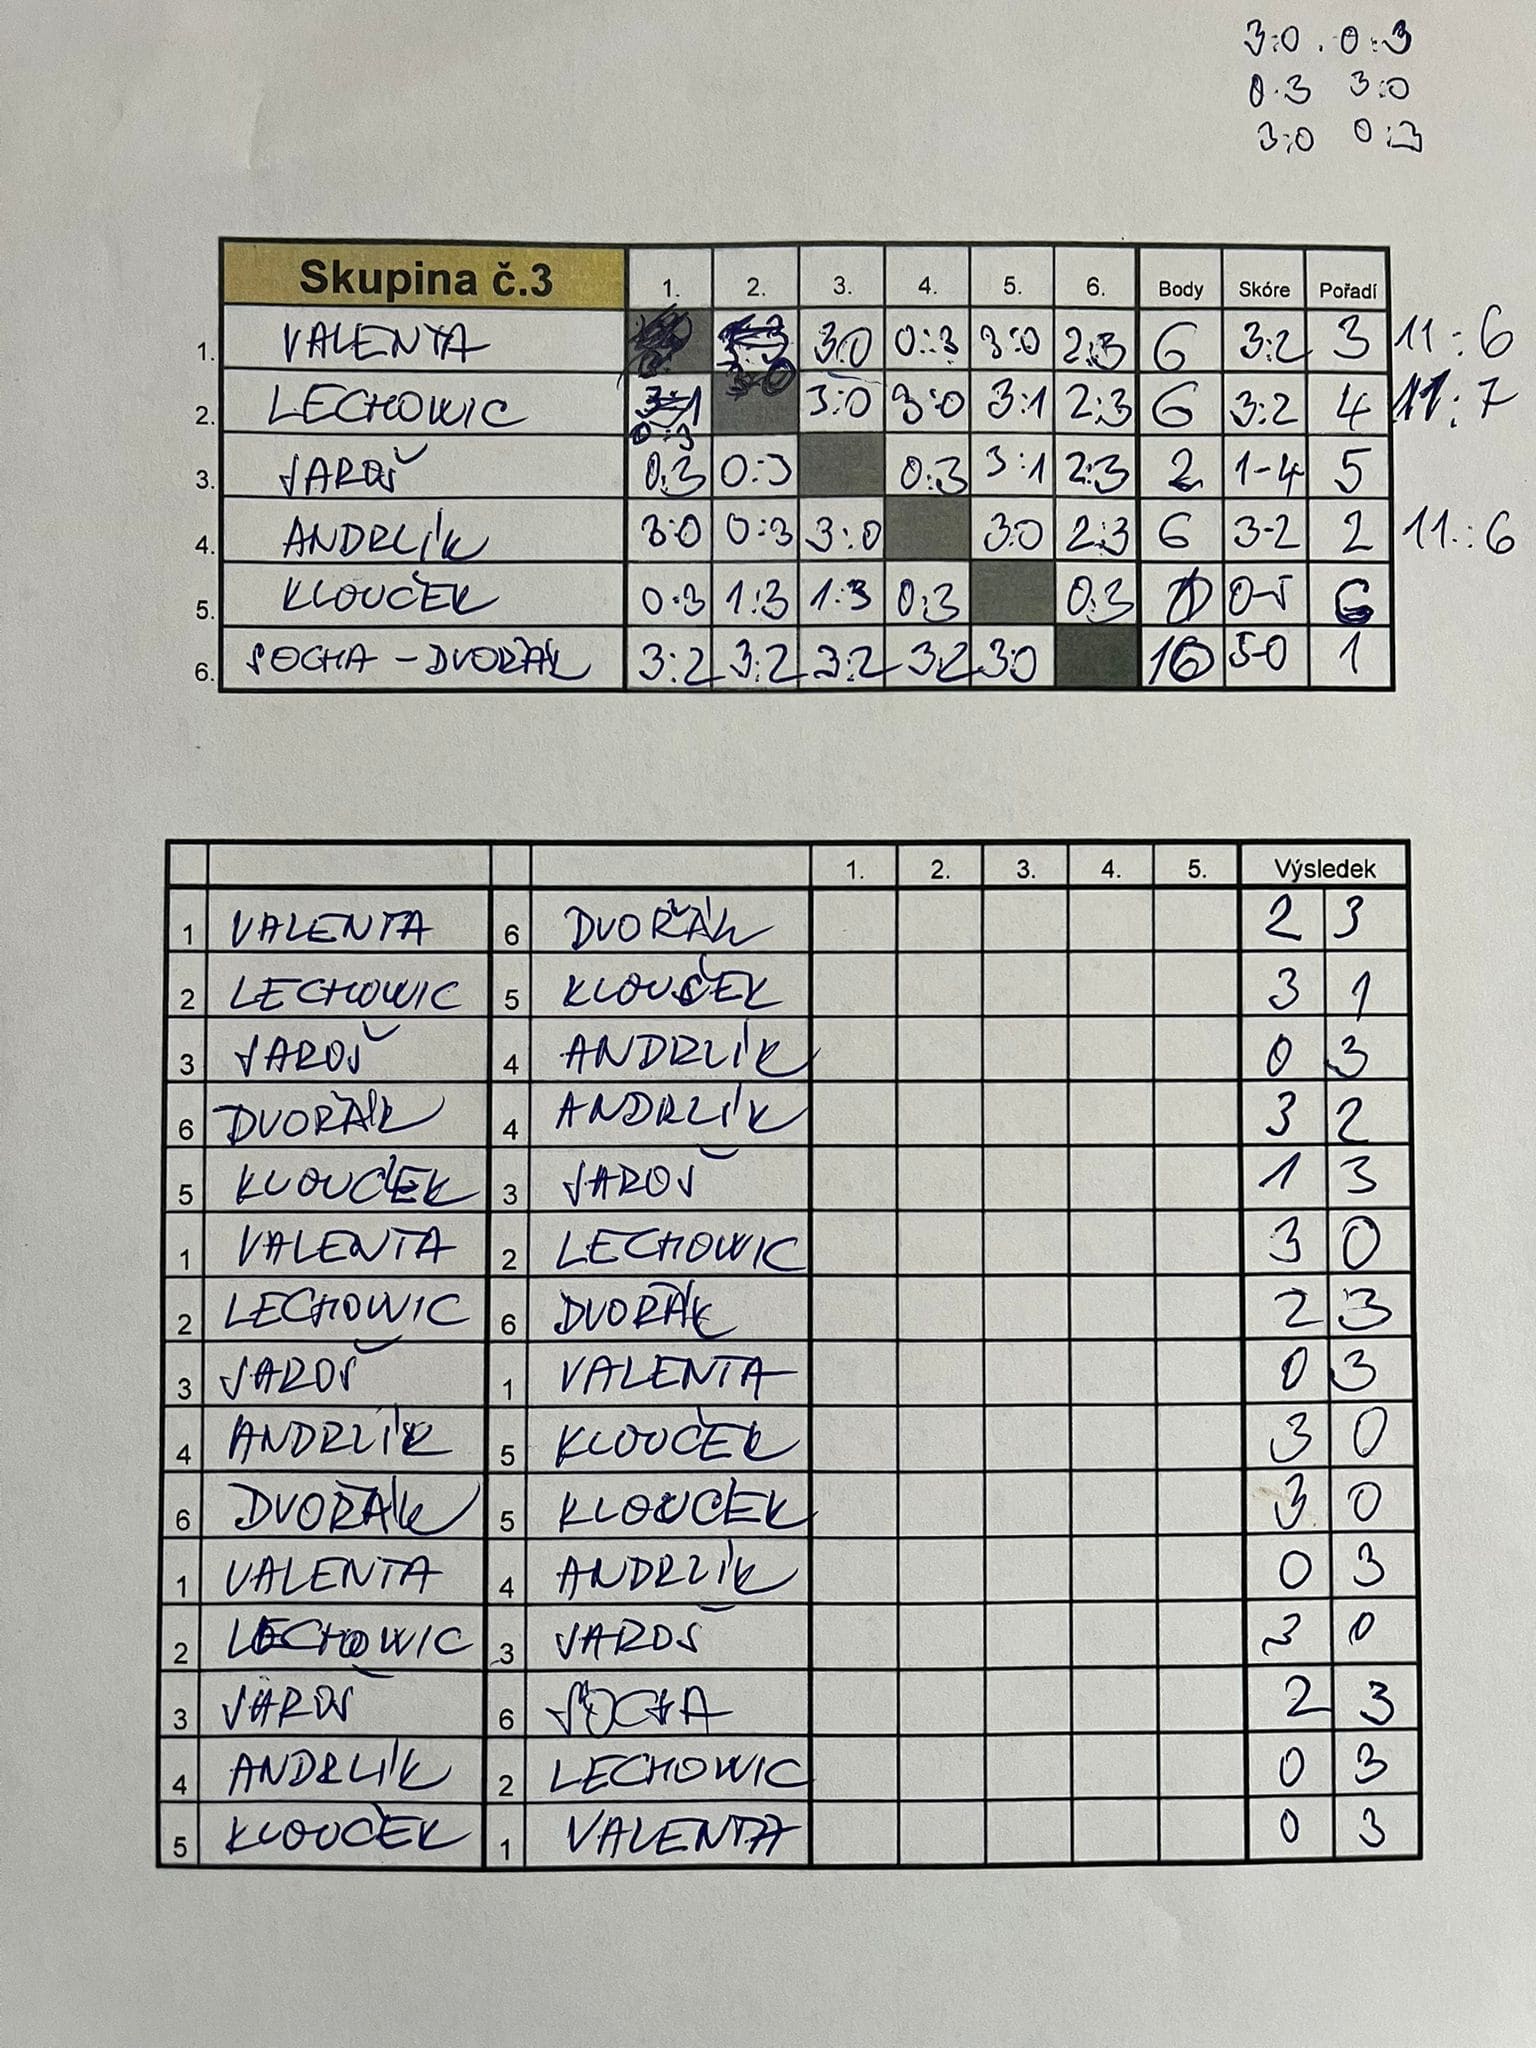 3:0 . 0:3
0:3 3:0
3:0 0:3
Skupina č.3 1. 2. 3. 4. 5. 6. Body Skóre Pořadí
1. VALENTA 3:0 3:0 0:3 3:0 2:3 6 3:2 3 11:6
2. LECHOWIC 0:3 3:0 3:0 3:1 2:3 6 3:2 4 11:7
3. JAROŠ 0:3 0:3 0:3 3:1 2:3 2 1-4 5
4. ANDRLÍK 3:0 0:3 3:0 3:0 2:3 6 3-2 2 11:6
5. KLOUČEK 0:3 1:3 1:3 0:3 0:3 0 0-5 6
6. SOCHA - DVOŘÁK 3:2 3:2 3:2 3:2 3:0 10 5-0 1
1. 2. 3. 4. 5. Výsledek
1 VALENTA 6 DVOŘÁK 2 3
2 LECHOWIC 5 KLOUČEK 3 1
3 JAROŠ 4 ANDRLÍK 0 3
6 DVOŘÁK 4 ANDRLÍK 3 2
5 KLOUČEK 3 JAROŠ 1 3
1 VALENTA 2 LECHOWIC 3 0
2 LECHOWIC 6 DVOŘÁK 2 3
3 JAROŠ 1 VALENTA 0 3
4 ANDRLÍK 5 KLOUČEK 3 0
6 DVOŘÁK 5 KLOUČEK 3 0
1 VALENTA 4 ANDRLÍK 0 3
2 LECHOWIC 3 JAROŠ 3 0
3 JAROŠ 6 SOCHA 2 3
4 ANDRLÍK 2 LECHOWIC 0 3
5 KLOUČEK 1 VALENTA 0 3